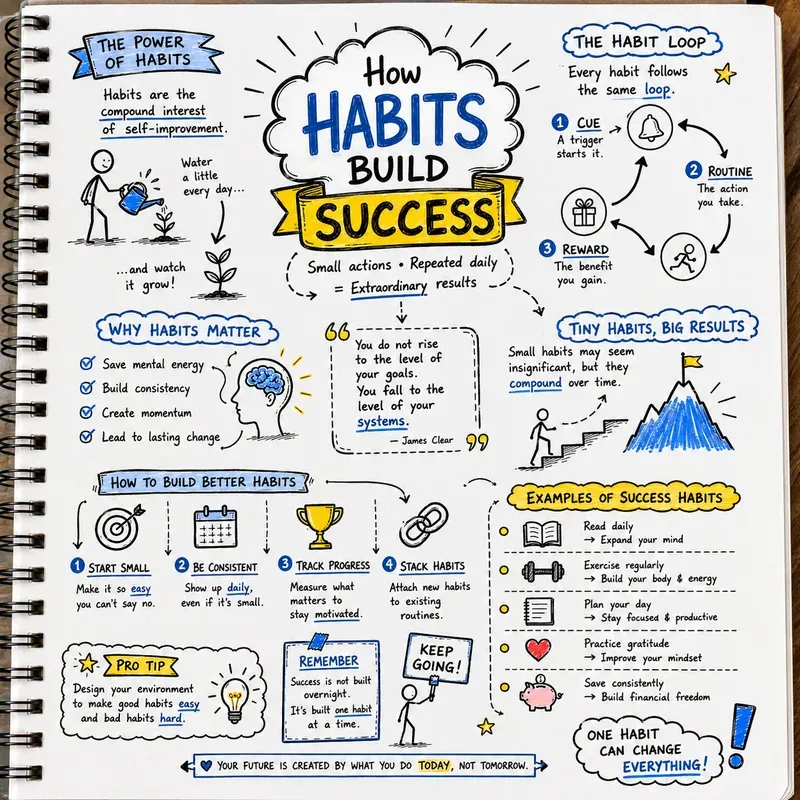 THE POWER
OF HABITS
Habits are the
compound interest
of self-improvement.
Water
a little
every day...
...and watch
it grow!
How
HABITS
BUILD
SUCCESS
Small actions • Repeated daily
= Extraordinary results
THE HABIT LOOP
Every habit follows
the same loop.
1 CUE
A trigger
starts it.
2 ROUTINE
The action
you take.
3 REWARD
The benefit
you gain.
WHY HABITS MATTER
Save mental energy
Build consistency
Create momentum
Lead to lasting change
“
You do not rise
to the level of
your goals.
You fall to the
level of your
systems.
— James Clear
”
TINY HABITS, BIG RESULTS
Small habits may seem
insignificant, but they
compound over time.
HOW TO BUILD BETTER HABITS
1 START SMALL
Make it so easy
you can't say no.
2 BE CONSISTENT
Show up daily,
even if it's small.
3 TRACK PROGRESS
Measure what
matters to
stay motivated.
4 STACK HABITS
Attach new habits
to existing
routines.
EXAMPLES OF SUCCESS HABITS
Read daily
→ Expand your mind
Exercise regularly
→ Build your body & energy
Plan your day
→ Stay focused & productive
Practice gratitude
→ Improve your mindset
Save consistently
→ Build financial freedom
PRO TIP
Design your environment
to make good habits easy
and bad habits hard.
REMEMBER
Success is not built
overnight.
It's built one habit
at a time.
KEEP
GOING!
ONE HABIT
CAN CHANGE
EVERYTHING!
YOUR FUTURE IS CREATED BY WHAT YOU DO TODAY, NOT TOMORROW.